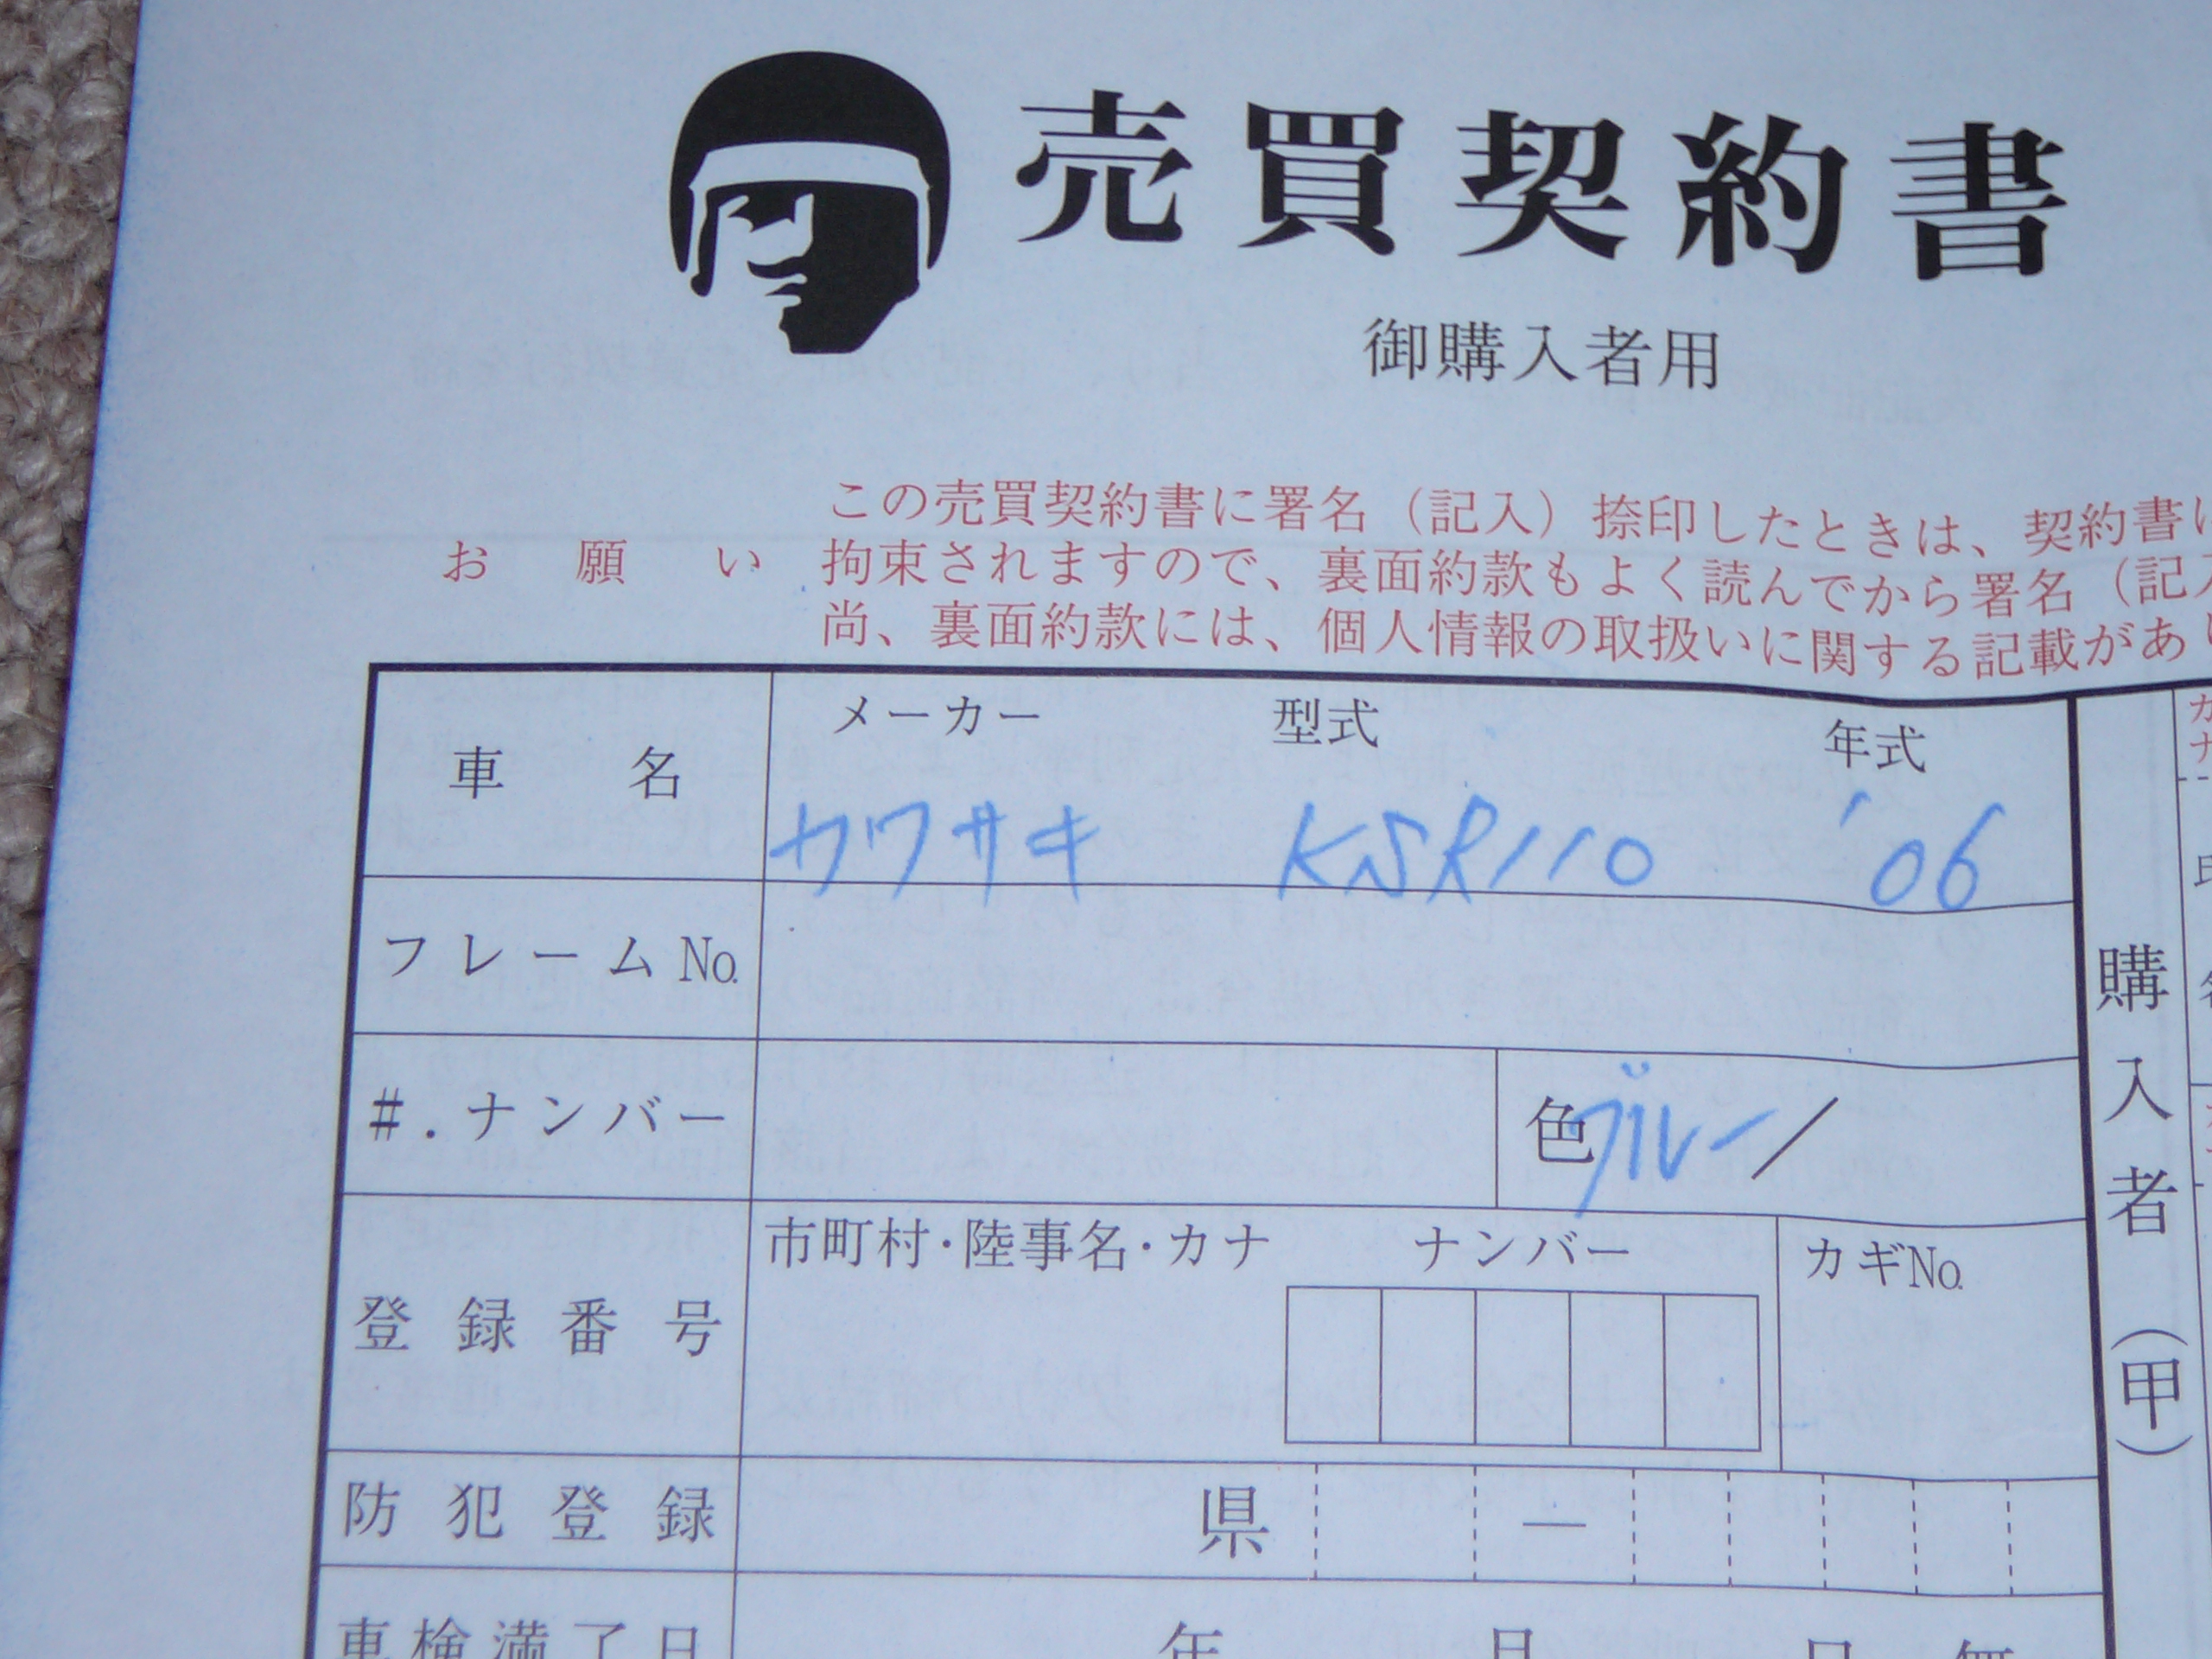 売買契約書
御購入者用
お願い
この売買契約書に署名（記入）捺印したときは、契約書に
拘束されますので、裏面約款もよく読んでから署名（記入
尚、裏面約款には、個人情報の取扱いに関する記載があり
車名 メーカー 型式 年式
カワサキ KSR110 '06
フレームNo.
#.ナンバー 色 ブルー／
登録番号 市町村・陸事名・カナ ナンバー カギNo.
防犯登録 県 —
車検満了日 年 月 日 無
購入者（甲）
カナ